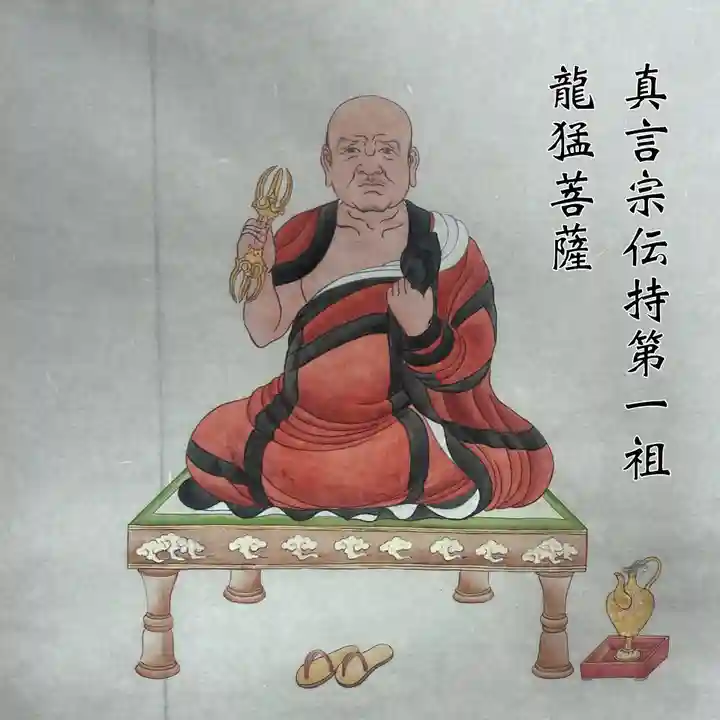 真言宗伝持第一祖
龍猛菩薩